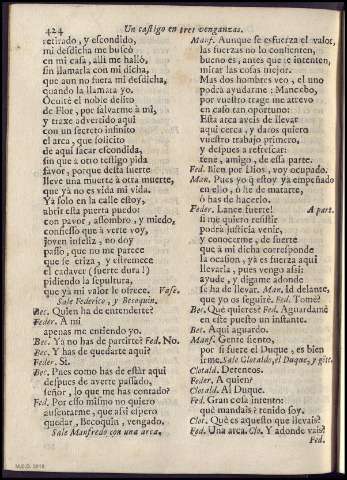 424
Un castigo en tres venganzas.
retirado, y escondido,
mi desdicha me buscò
en mi casa, alli me hallò,
sin llamarla con mi dicha,
que aun no fuera mi desdicha,
quando la llamàra yo.
Ocultè el noble delito
de Flor, por salvarme à mi,
y traxe advertido aqui
con un secreto infinito
el arca, que solicito
de aqui sacar escondida,
sin que à otro testigo pida
favor, porque desta suerte
lleve una muerte à otra muerte,
que yà no es vida mi vida.
Yà solo en la calle estoy,
abrir esta puerta puedo:
con pavor, assombro, y miedo,
confiesso que à verte voy,
joven infeliz, no doy
passo, que no me parece
que se eriza, y estremece
el cadaver (suerte dura!)
pidiendo la sepultura,
que yà mi valor le ofrece. Vase.
Sale Federico, y Becoquin.
Bec. Quien ha de entenderte?
Feder. A mi
apenas me entiendo yo.
Bec. Ya no has de partirte? Fed. No.
Bec. Y has de quedarte aqui?
Feder. Si.
Bec. Pues como has de estàr aqui
despues de averte passado,
señor, lo que me has contado?
Fed. Por esso mismo no quiero
ausentarme, que assi espero
quedar, Becoquin, vengado.
Sale Manfredo con una arca.
Manf. Aunque se esfuerza el valor,
las fuerzas no lo consienten,
bueno es, antes que se intenten,
mirar las cosas mejor.
Mas dos hombres veo, el uno
podrà ayudarme: Mancebo,
por vuestro trage me atrevo
en caso tan oportuno:
Esta arca aveis de llevar
aqui cerca, y daros quiero
vuestro trabajo primero,
y despues a refrescar:
tene, amigo, de essa parte.
Fed. Bien por Dios, voy ocupado.
Man. Pues yo q estoy yà empeñado
en ello, ò he de matarte,
ò has de hacerlo.
Feder. Lance fuerte! A part.
si me quiero resistir
podrà justicia venir,
y conocerme, de suerte
que à mi dicha corresponde
la ocasion, yà es fuerza aqui
llevarla, pues vengo assi:
ayude, y digame adonde
se ha de llevar. Man. Id delante,
que yo os seguirè. Fed. Tomè?
Bec. Que quieres? Fed. Aguardame
en este puesto un instante.
Bec. Aqui aguardo.
Manf. Gente siento,
por si fuere el Duque, es bien
irme. Sale Clotaldo, el Duque, y gẽte.
Clotald. Deteneos.
Feder. A quien?
Clotald. Al Duque.
Fed. Gran cosa intento:
què mandais? tenido soy.
Clot. Què es aquesto que llevais?
Fed. Una arca. Clo. Y adonde vais?
Fed.